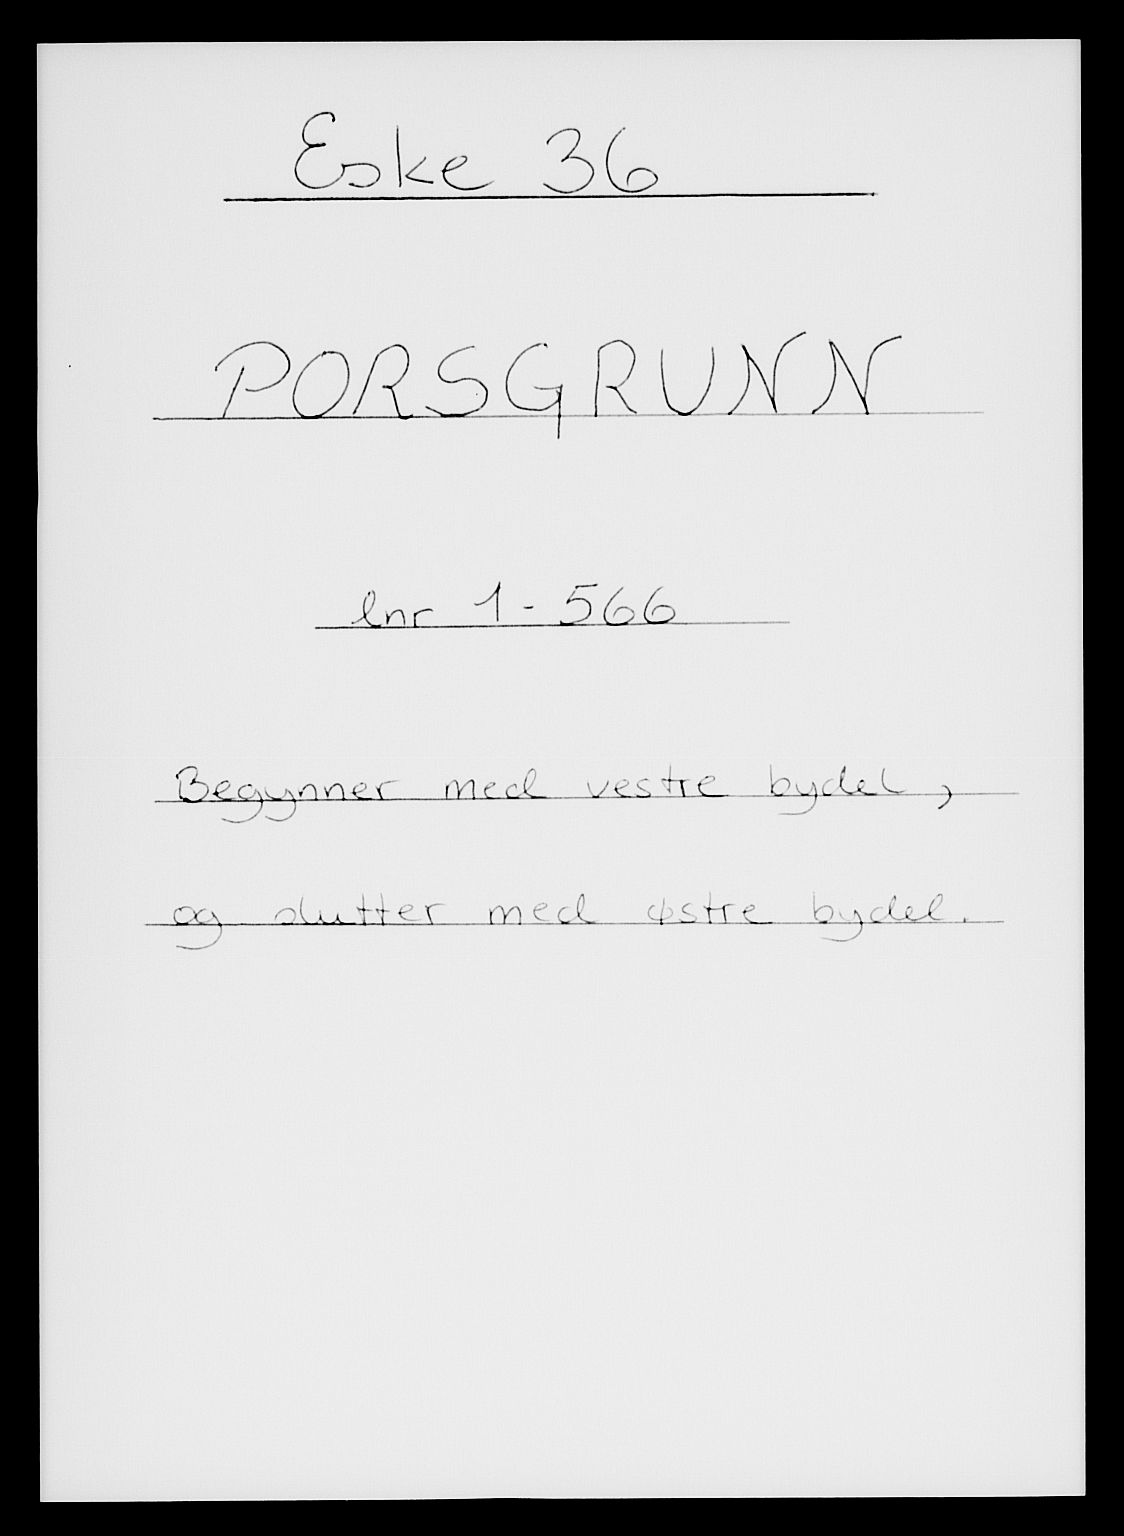 Eske 36
PORSGRUNN
lnr 1-566
Begynner med vestre bydel,
og slutter med østre bydel.